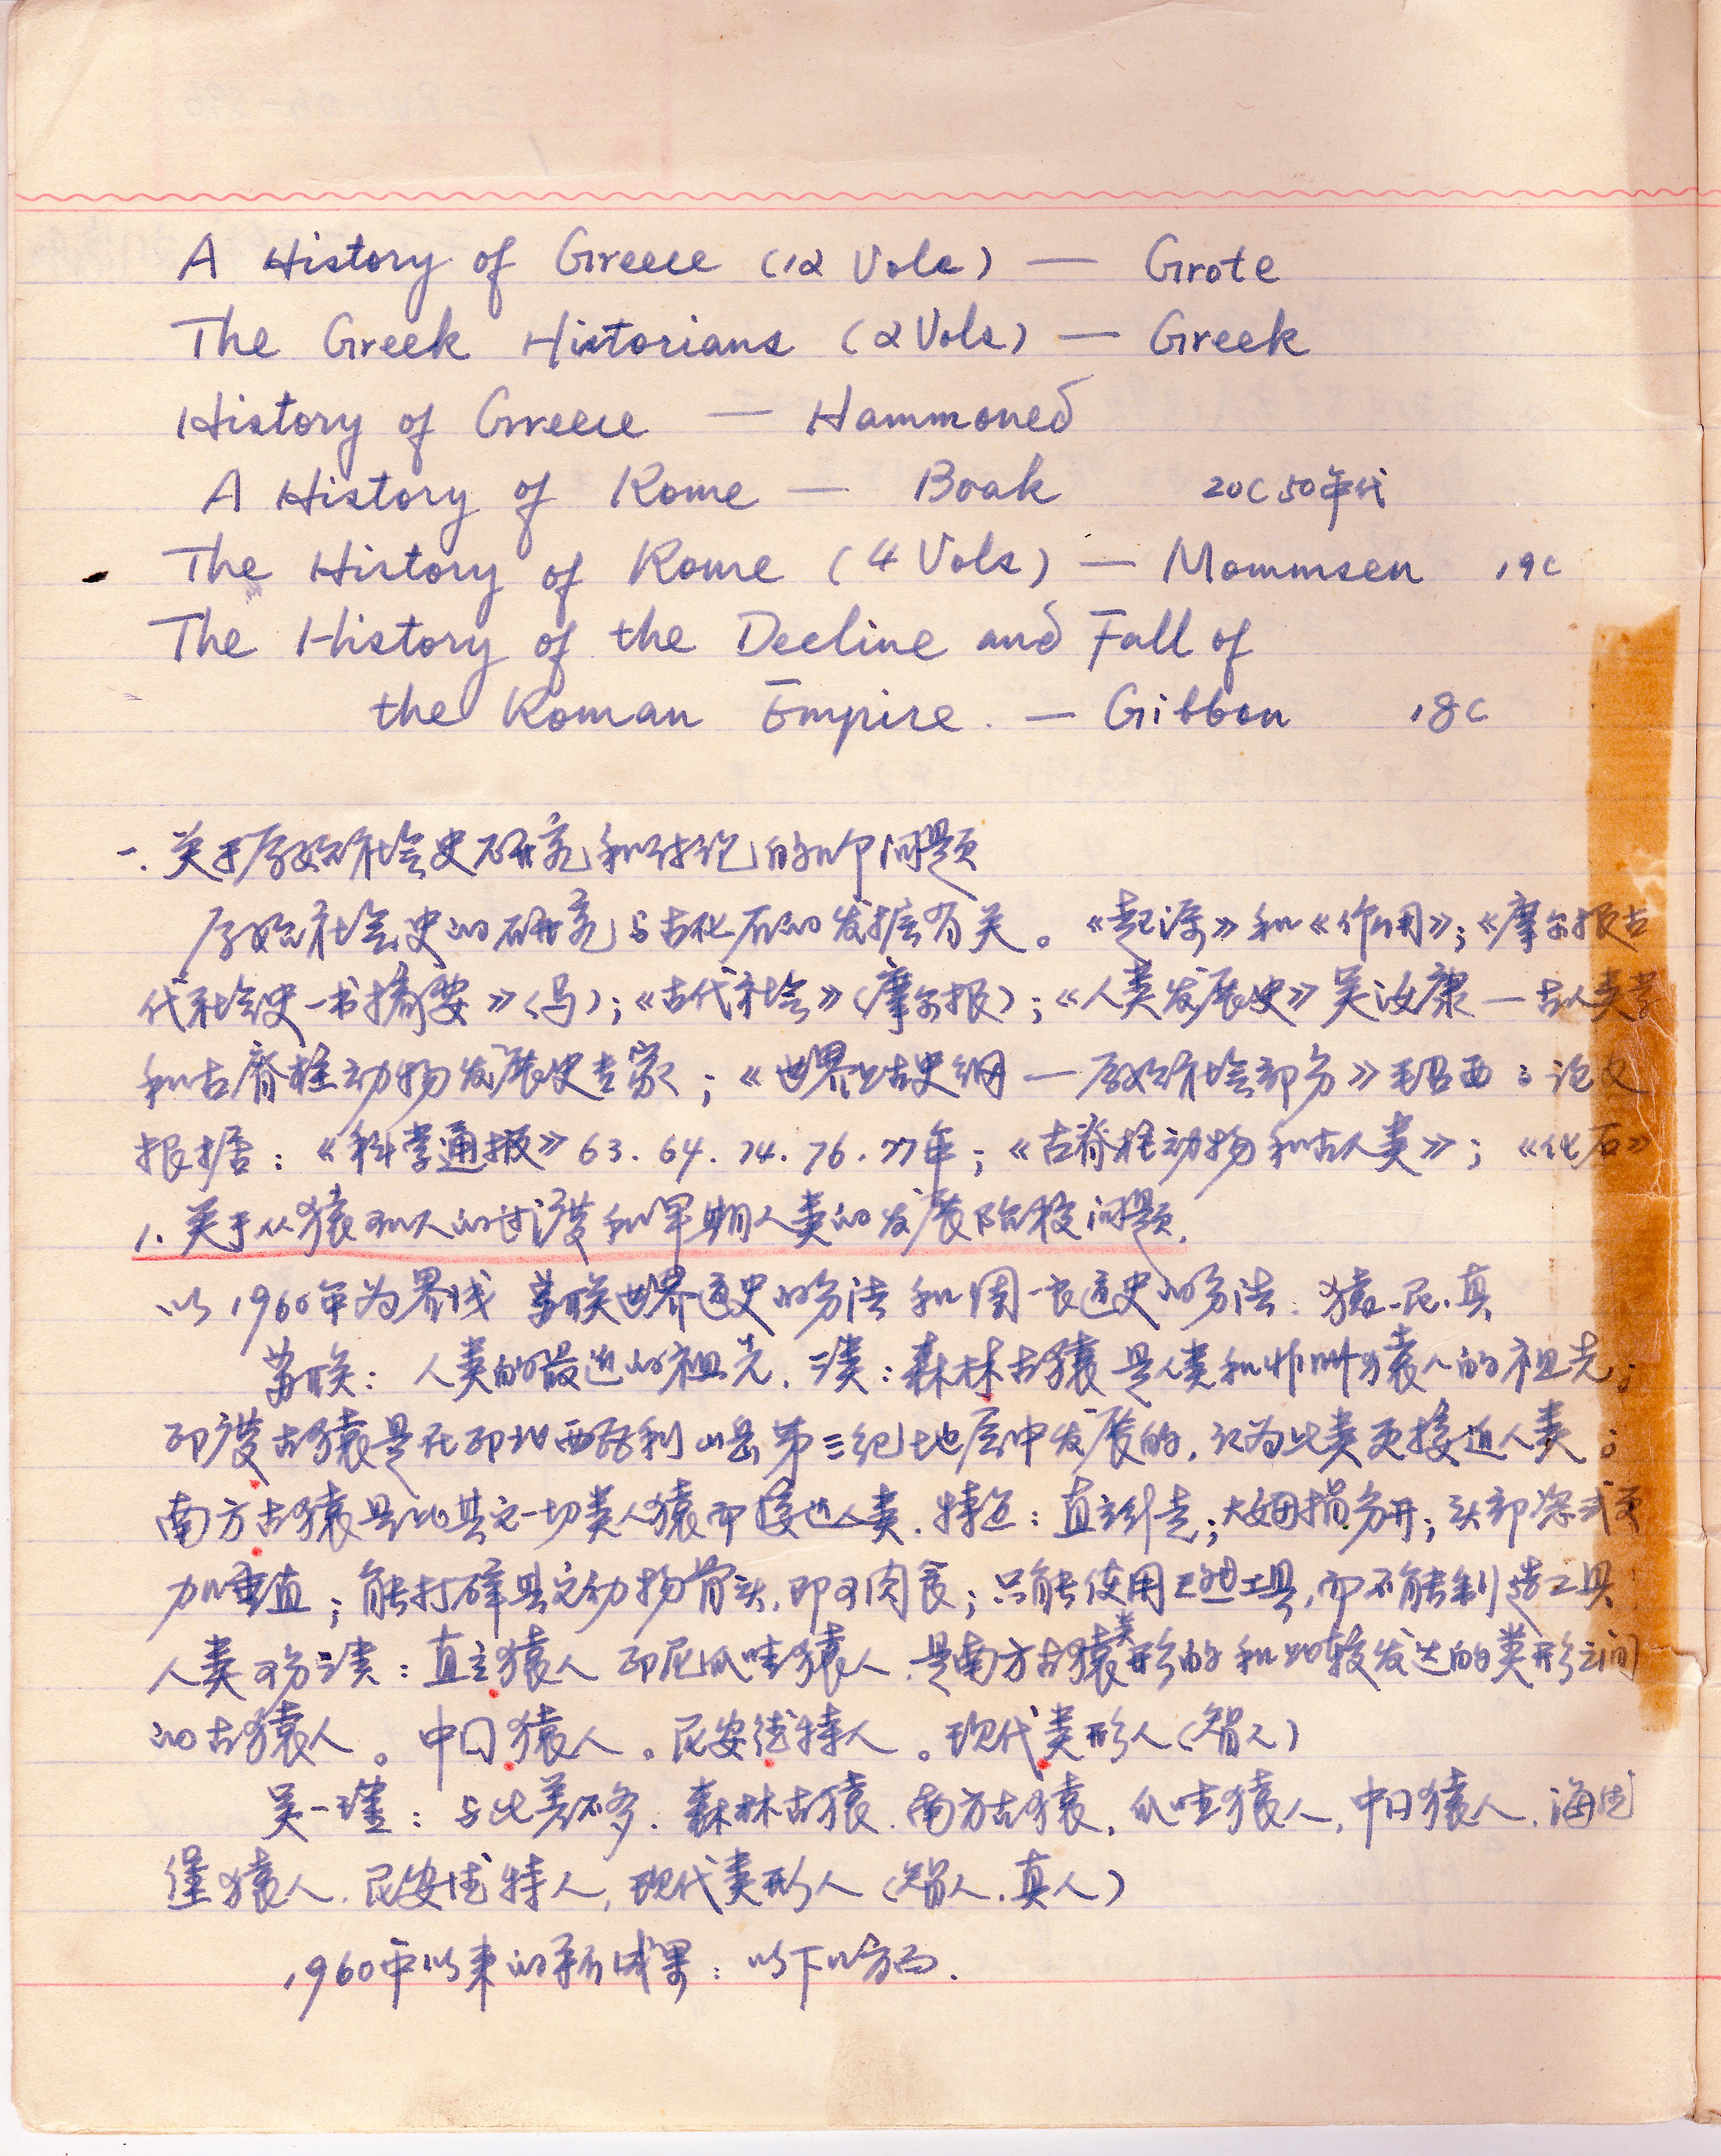 A History of Greece (12 Vols) — Grote
The Greek Historians (2 Vols) — Greek
History of Greece — Hammoned
A History of Rome — Boak 20C 50年代
The History of Rome (4 Vols) — Mommsen 19C
The History of the Decline and Fall of
the Roman Empire. — Gibbon 18C
一. 关于原始社会史研究和讨论的问题
原始社会史的研究与古化石的发掘有关。《起源》和《作用》；《摩尔根古
代社会史一书摘要》（马）；《古代社会》（摩尔根）；《人类发展史》吴汝康—古人类学
和古脊椎动物发展史专家；《世界上古史纲—原始社会部分》毛昭西；论文
根据：《科学通报》63.64.74.76.77年；《古脊椎动物和古人类》；《化石》
1. 关于从猿到人的过渡和早期人类的发展阶段问题.
以1960年为界线 苏联世界通史的分法和周一良通史的分法：猿.尼.真
苏联：人类的最近的祖先.三类：森林古猿是人类和非洲猿人的祖先；
印度古猿是在印北西瓦利山岳第三纪地层中发展的，认为此类更接近人类；
南方古猿是比其它一切类人猿而接近人类.特征：直立行走；大姆指分开；头部姿式更
加垂直；能打碎其它动物骨头，即可肉食；只能使用工具，而不能制造工具
人类可分三类：直立猿人 印尼爪哇猿人.是南方古猿类形的和比较发达的类形之间
的古猿人。中国猿人。尼安德特人。现代类形人（智人）
吴一瑾：与此差不多.森林古猿.南方古猿，爪哇猿人，中国猿人.海德
堡猿人.尼安德特人，现代类形人（智人.真人）
1960年以来的新成果：以下几方面.